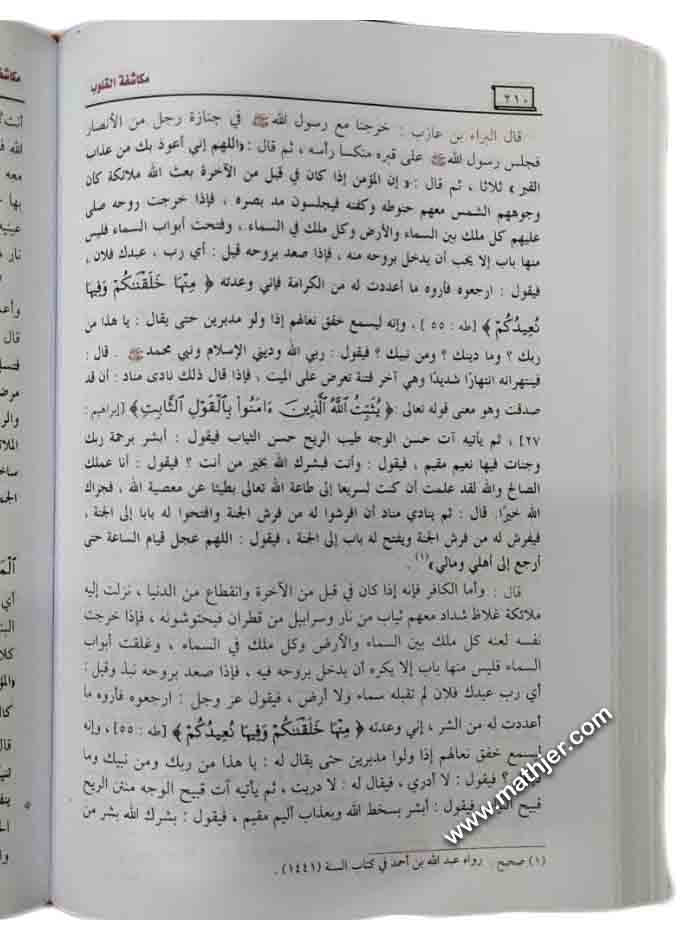 ٢١٠
مكاشفة القلوب
قال البراء بن عازب : خرجنا مع رسول الله ﷺ في جنازة رجل من الأنصار
فجلس رسول الله ﷺ على قبره منكسا رأسه ، ثم قال : «اللهم إني أعوذ بك من عذاب
القبر » ثلاثا ، ثم قال : « إن المؤمن إذا كان في قبل من الآخرة بعث الله ملائكة كأن
وجوههم الشمس معهم حنوطه وكفنه فيجلسون مد بصره ، فإذا خرجت روحه صلى
عليهم كل ملك بين السماء والأرض وكل ملك في السماء ، وفتحت أبواب السماء فليس
منها باب إلا يحب أن يدخل بروحه منه ، فإذا صعد بروحه قيل : أي رب ، عبدك فلان ،
فيقول : ارجعوه فأروه ما أعددت له من الكرامة فإني وعدته ﴿ مِنْهَا خَلَقْنَكُمْ وَفِيهَا
نُعِيدُكُمْ ﴾ [ طه : ٥٥ ] ، وإنه ليسمع خفق نعالهم إذا ولو مدبرين حتى يقال : يا هذا من
ربك ؟ وما دينك ؟ ومن نبيك ؟ فيقول : ربي الله وديني الإسلام ونبي محمد ﷺ . قال :
فينتهرانه انتهارًا شديدًا وهي آخر فتنة تعرض على الميت ، فإذا قال ذلك نادى مناد : أن قد
صدقت وهو معنى قوله تعالى : ﴿ يُثَبِّتُ ٱللَّهُ ٱلَّذِينَ ءَامَنُوا بِٱلْقَوْلِ ٱلثَّابِتِ ﴾ [إبراهيم :
٢٧] ، ثم يأتيه آت حسن الوجه طيب الريح حسن الثياب فيقول : أبشر برحمة ربك
وجنات فيها نعيم مقيم ، فيقول : وأنت فبشرك الله بخير من أنت ؟ فيقول : أنا عملك
الصالح والله لقد علمت أن كنت لسريعا إلى طاعة الله تعالى بطيئا عن معصية الله ، فجزاك
الله خيرًا. قال : ثم ينادي مناد أن افرشوا له من فرش الجنة وافتحوا له بابا إلى الجنة ،
فيفرش له من فرش الجنة ويفتح له باب إلى الجنة ، فيقول : اللهم عجل قيام الساعة حتى
أرجع إلى أهلي ومالي» (١) .
قال : وأما الكافر فإنه إذا كان في قبل من الآخرة وانقطاع من الدنيا ، نزلت إليه
ملائكة غلاظ شداد معهم ثياب من نار وسرابيل من قطران فيحتوشونه ، فإذا خرجت
نفسه لعنه كل ملك بين السماء والأرض وكل ملك في السماء ، وغلقت أبواب
السماء فليس منها باب إلا يكره أن يدخل بروحه فيه ، فإذا صعد بروحه نبذ وقيل :
أي رب عبدك فلان لم تقبله سماء ولا أرض ، فيقول عز وجل : ارجعوه فأروه ما
أعددت له من الشر ، إني وعدته ﴿ مِنْهَا خَلَقْنَكُمْ وَفِيهَا نُعِيدُكُمْ ﴾ [طه : ٥٥] ، وإنه
ليسمع خفق نعالهم إذا ولوا مدبرين حتى يقال له : يا هذا من ربك ومن نبيك وما
؟ فيقول : لا أدري ، فيقال له : لا دريت ، ثم يأتيه آت قبيح الوجه منتن الريح
قبيح فيقول : أبشر بسخط الله وبعذاب أليم مقيم ، فيقول : بشرك الله بشر من
(١) صحيح . رواه عبد الله بن أحمد في كتاب السنة (١٤٤١) .
www.mathjer.com